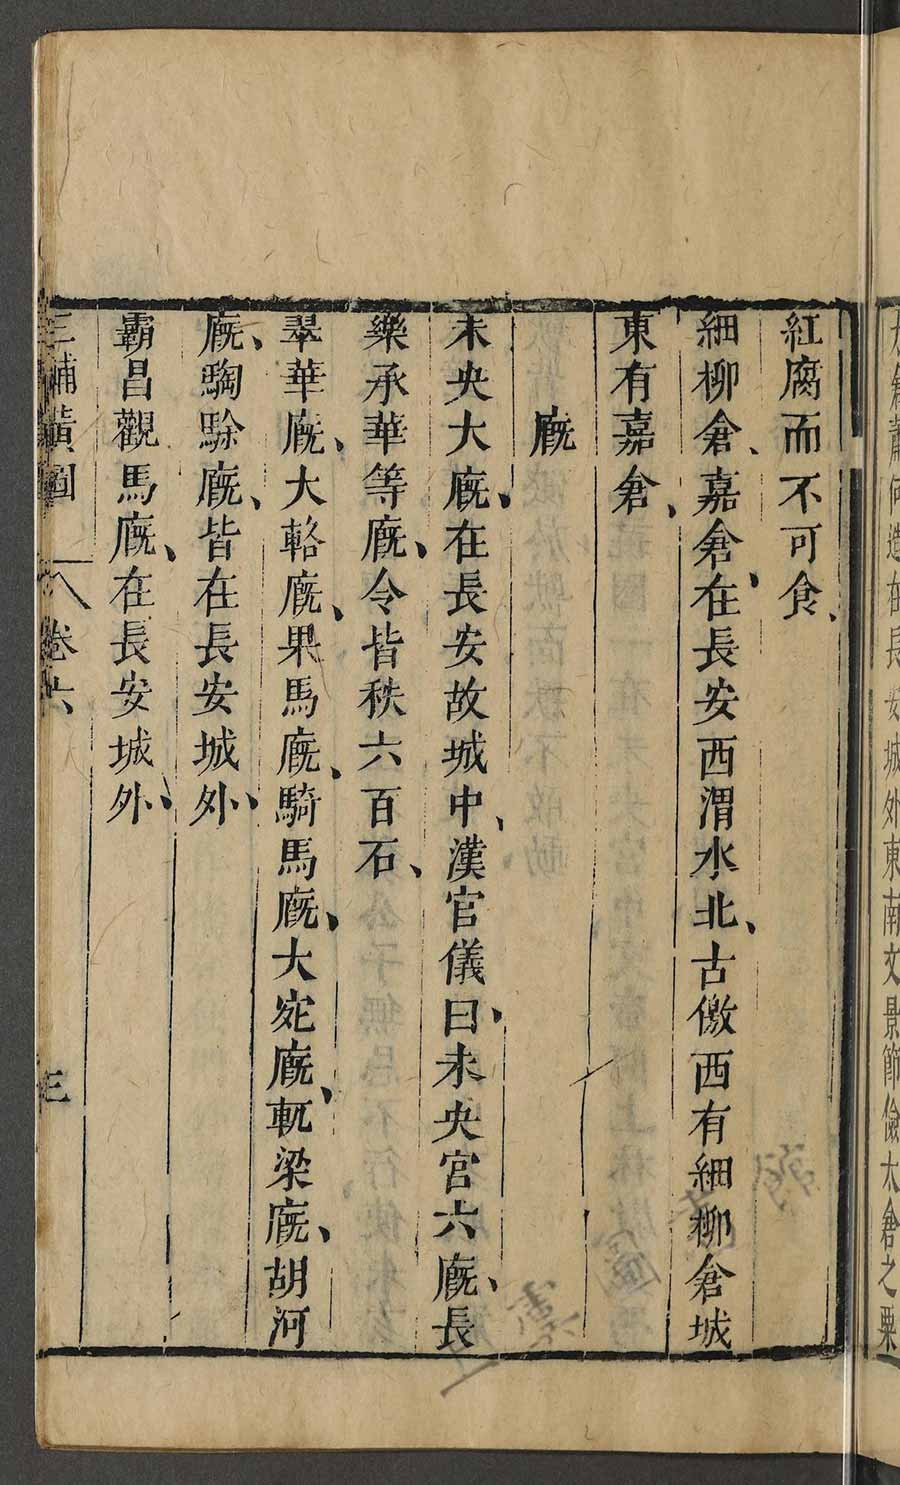 方倉蕭何造在長安城外東南文景節儉太倉之粟
紅腐而不可食、
細柳倉、嘉倉、在長安西渭水北、古儌西有細柳倉城
東有嘉倉、
廐
未央大廐、在長安故城中、漢官儀曰、未央宮六廐、長
樂承華等廐、令皆秩六百石、
翠華廐、大輅廐、果馬廐、騎馬廐、大宛廐、軏梁廐、胡河
廐、騊駼廐、皆在長安城外、
霸昌觀馬廐、在長安城外、
三輔黃圖 卷六 三